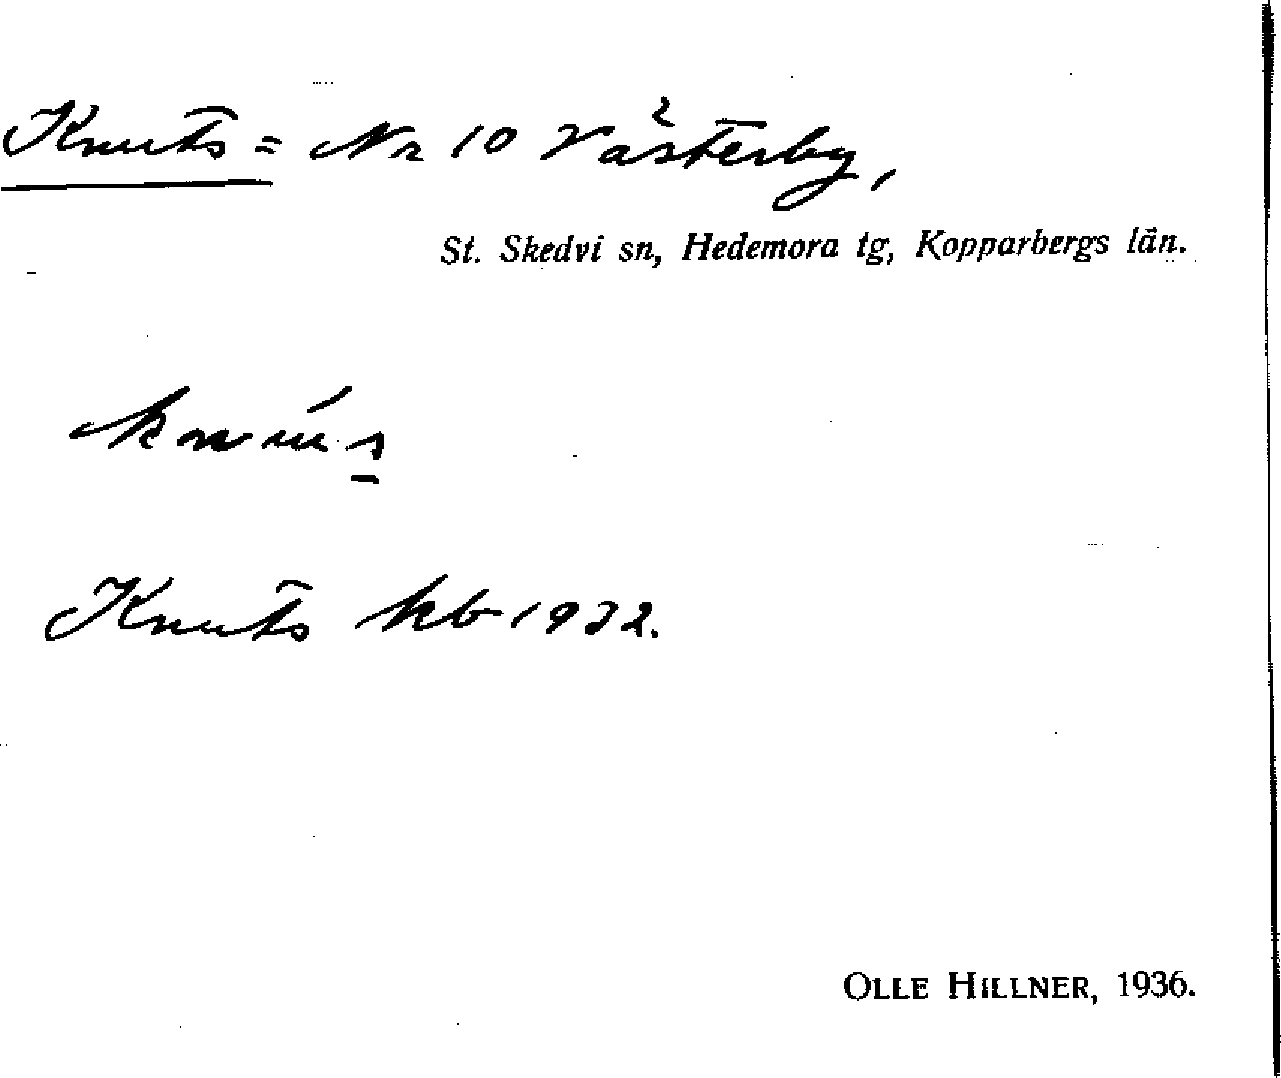 Knuts = Nr 10 Västerby,
St. Skedvi sn, Hedemora tg, Kopparbergs län.
Knuts kb 1932.
OLLE HILLNER, 1936.